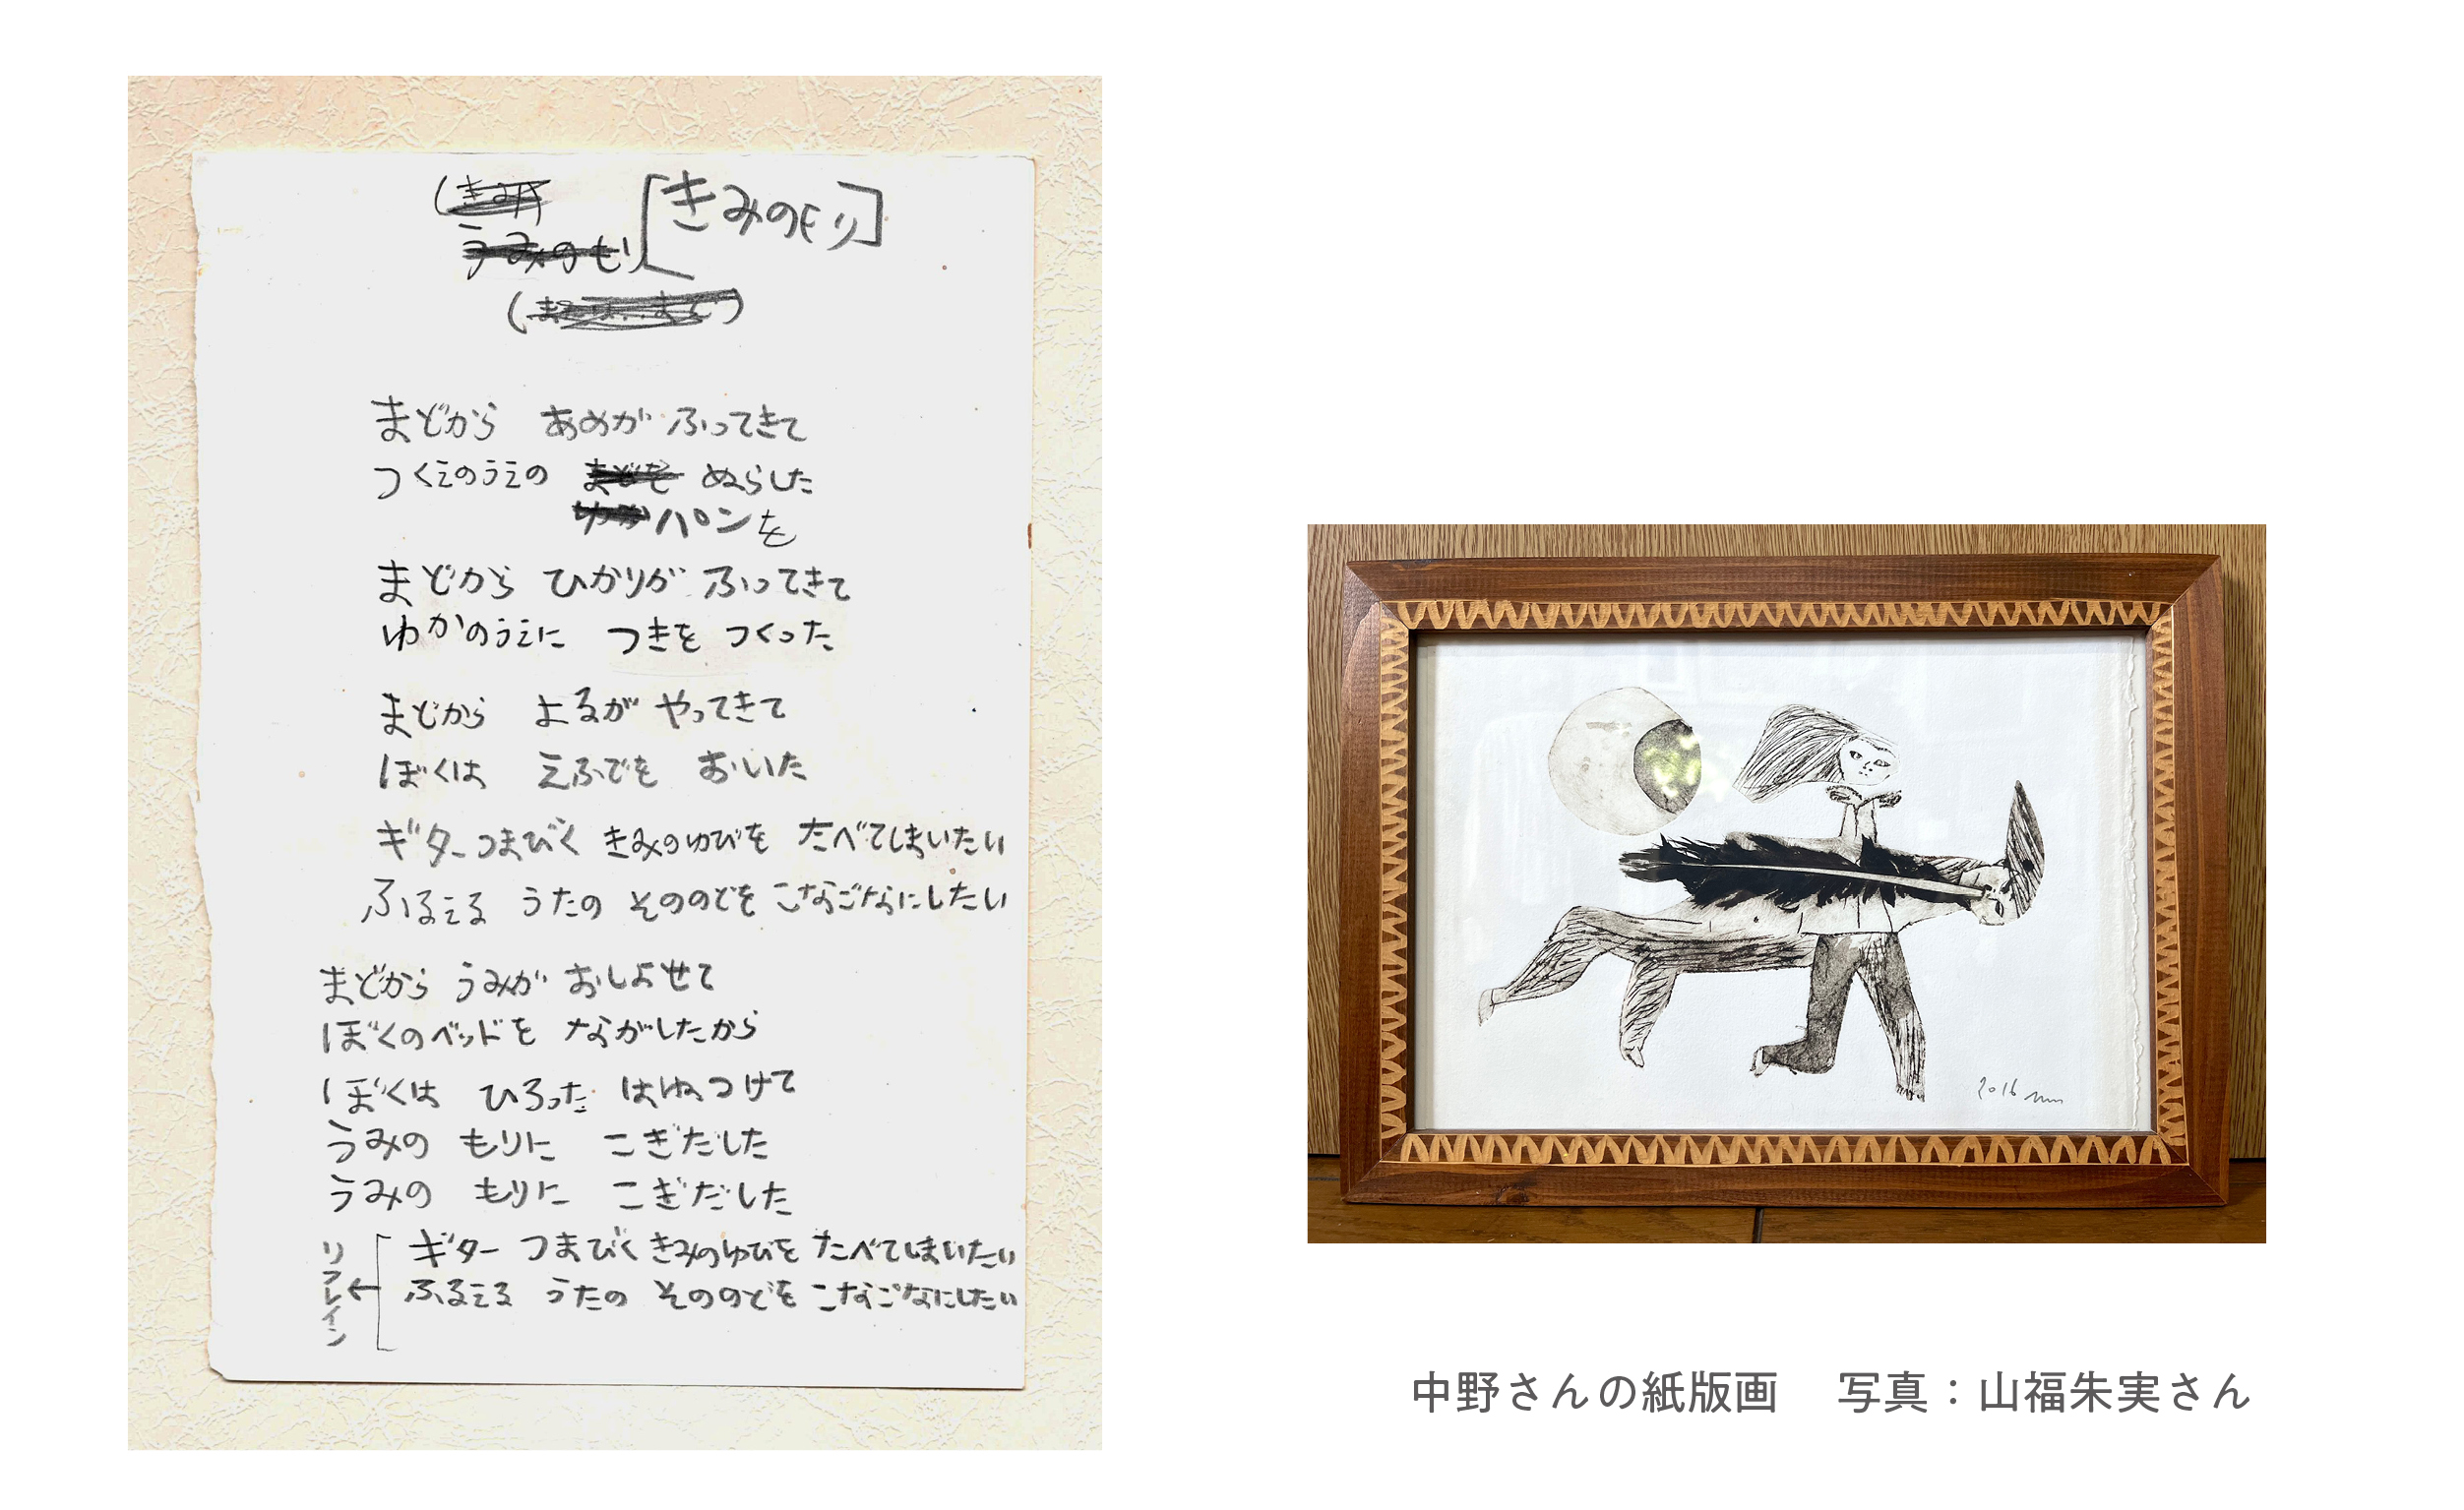 うみのもり [きみのもり]
まどから あめが ふってきて
つくえのうえの まどを ぬらした
パンを
まどから ひかりが ふってきて
ゆかのうえに つきを つくった
まどから よるが やってきて
ぼくは えふでを おいた
ギターつまびく きみのゆびを たべてしまいたい
ふるえる うたの そののどを こなごなにしたい
まどから うみが おしよせて
ぼくのベッドを ながしたから
ぼくは ひろった はねつけて
うみの もりに こぎだした
うみの もりに こぎだした
ギター つまびく きみのゆびを たべてしまいたい
ふるえる うたの そののどを こなごなにしたい
リフレイン
2016
中野さんの紙版画 写真：山福朱実さん